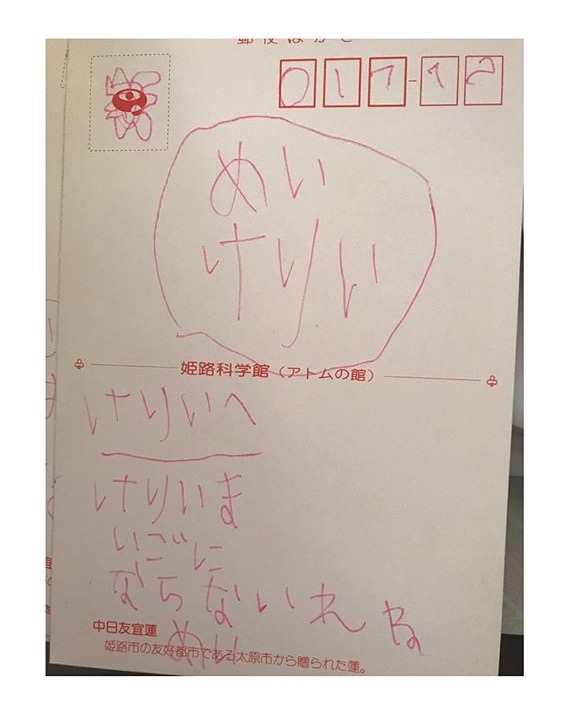 郵便はがき
017-
めい
けりい
姫路科学館（アトムの館）
けりいへ
けりいま
いごに
ならないれね
中日友宜蓮
めい
姫路市の友好都市である太原市から贈られた蓮。